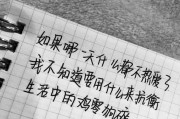 如果哪一天什么都不热爱了
我不知道要用什么来抗衡
生活中的鸡零狗碎